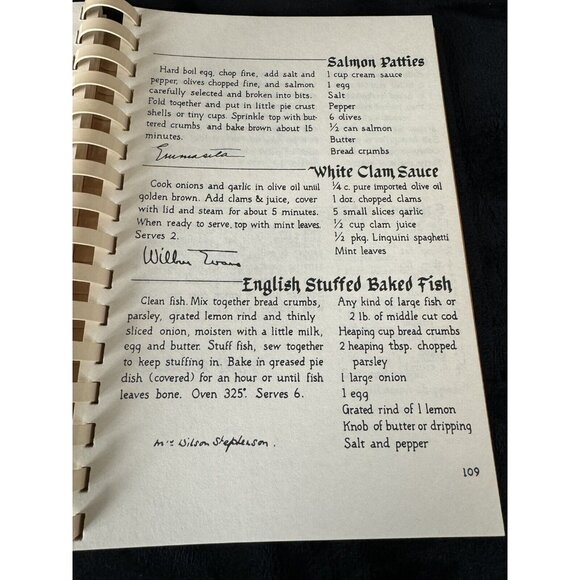 Salmon Patties
Hard boil egg, chop fine, add salt and
pepper, olives chopped fine, and salmon
carefully selected and broken into bits.
Fold together and put in little pie crust
shells or tiny cups. Sprinkle top with but-
tered crumbs and bake brown about 15
minutes.
1 cup cream sauce
1 egg
Salt
Pepper
6 olives
½ can salmon
Butter
Bread crumbs
White Clam Sauce
Cook onions and garlic in olive oil until
golden brown. Add clams & juice, cover
with lid and steam for about 5 minutes.
When ready to serve, top with mint leaves.
Serves 2.
Wilbur Evans
¼ c. pure imported olive oil
1 doz. chopped clams
5 small slices garlic
½ cup clam juice
½ pkg. Linguini spaghetti
Mint leaves
English Stuffed Baked Fish
Clean fish. Mix together bread crumbs,
parsley, grated lemon rind and thinly
sliced onion, moisten with a little milk,
egg and butter. Stuff fish, sew together
to keep stuffing in. Bake in greased pie
dish (covered) for an hour or until fish
leaves bone. Oven 325°. Serves 6.
Mrs Wilson Stephenson.
Any kind of large fish or
2 lb. of middle cut cod
Heaping cup bread crumbs
2 heaping tbsp. chopped
parsley
1 large onion
1 egg
Grated rind of 1 lemon
Knob of butter or dripping
Salt and pepper
109